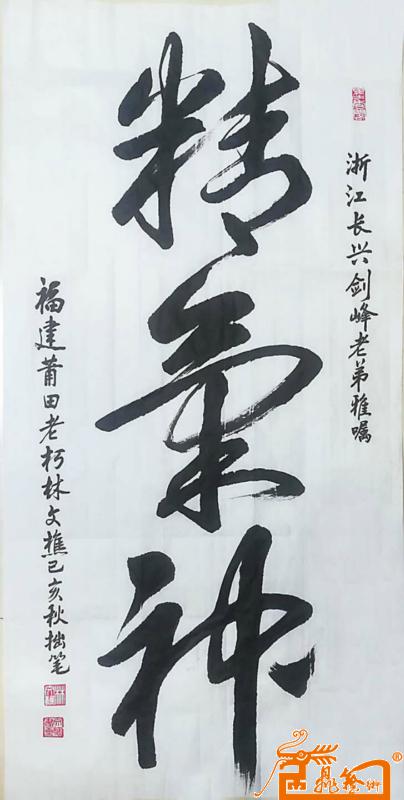 浙江长兴剑峰老弟雅嘱
精氣神
福建莆田老朽林文樵己亥秋拙笔